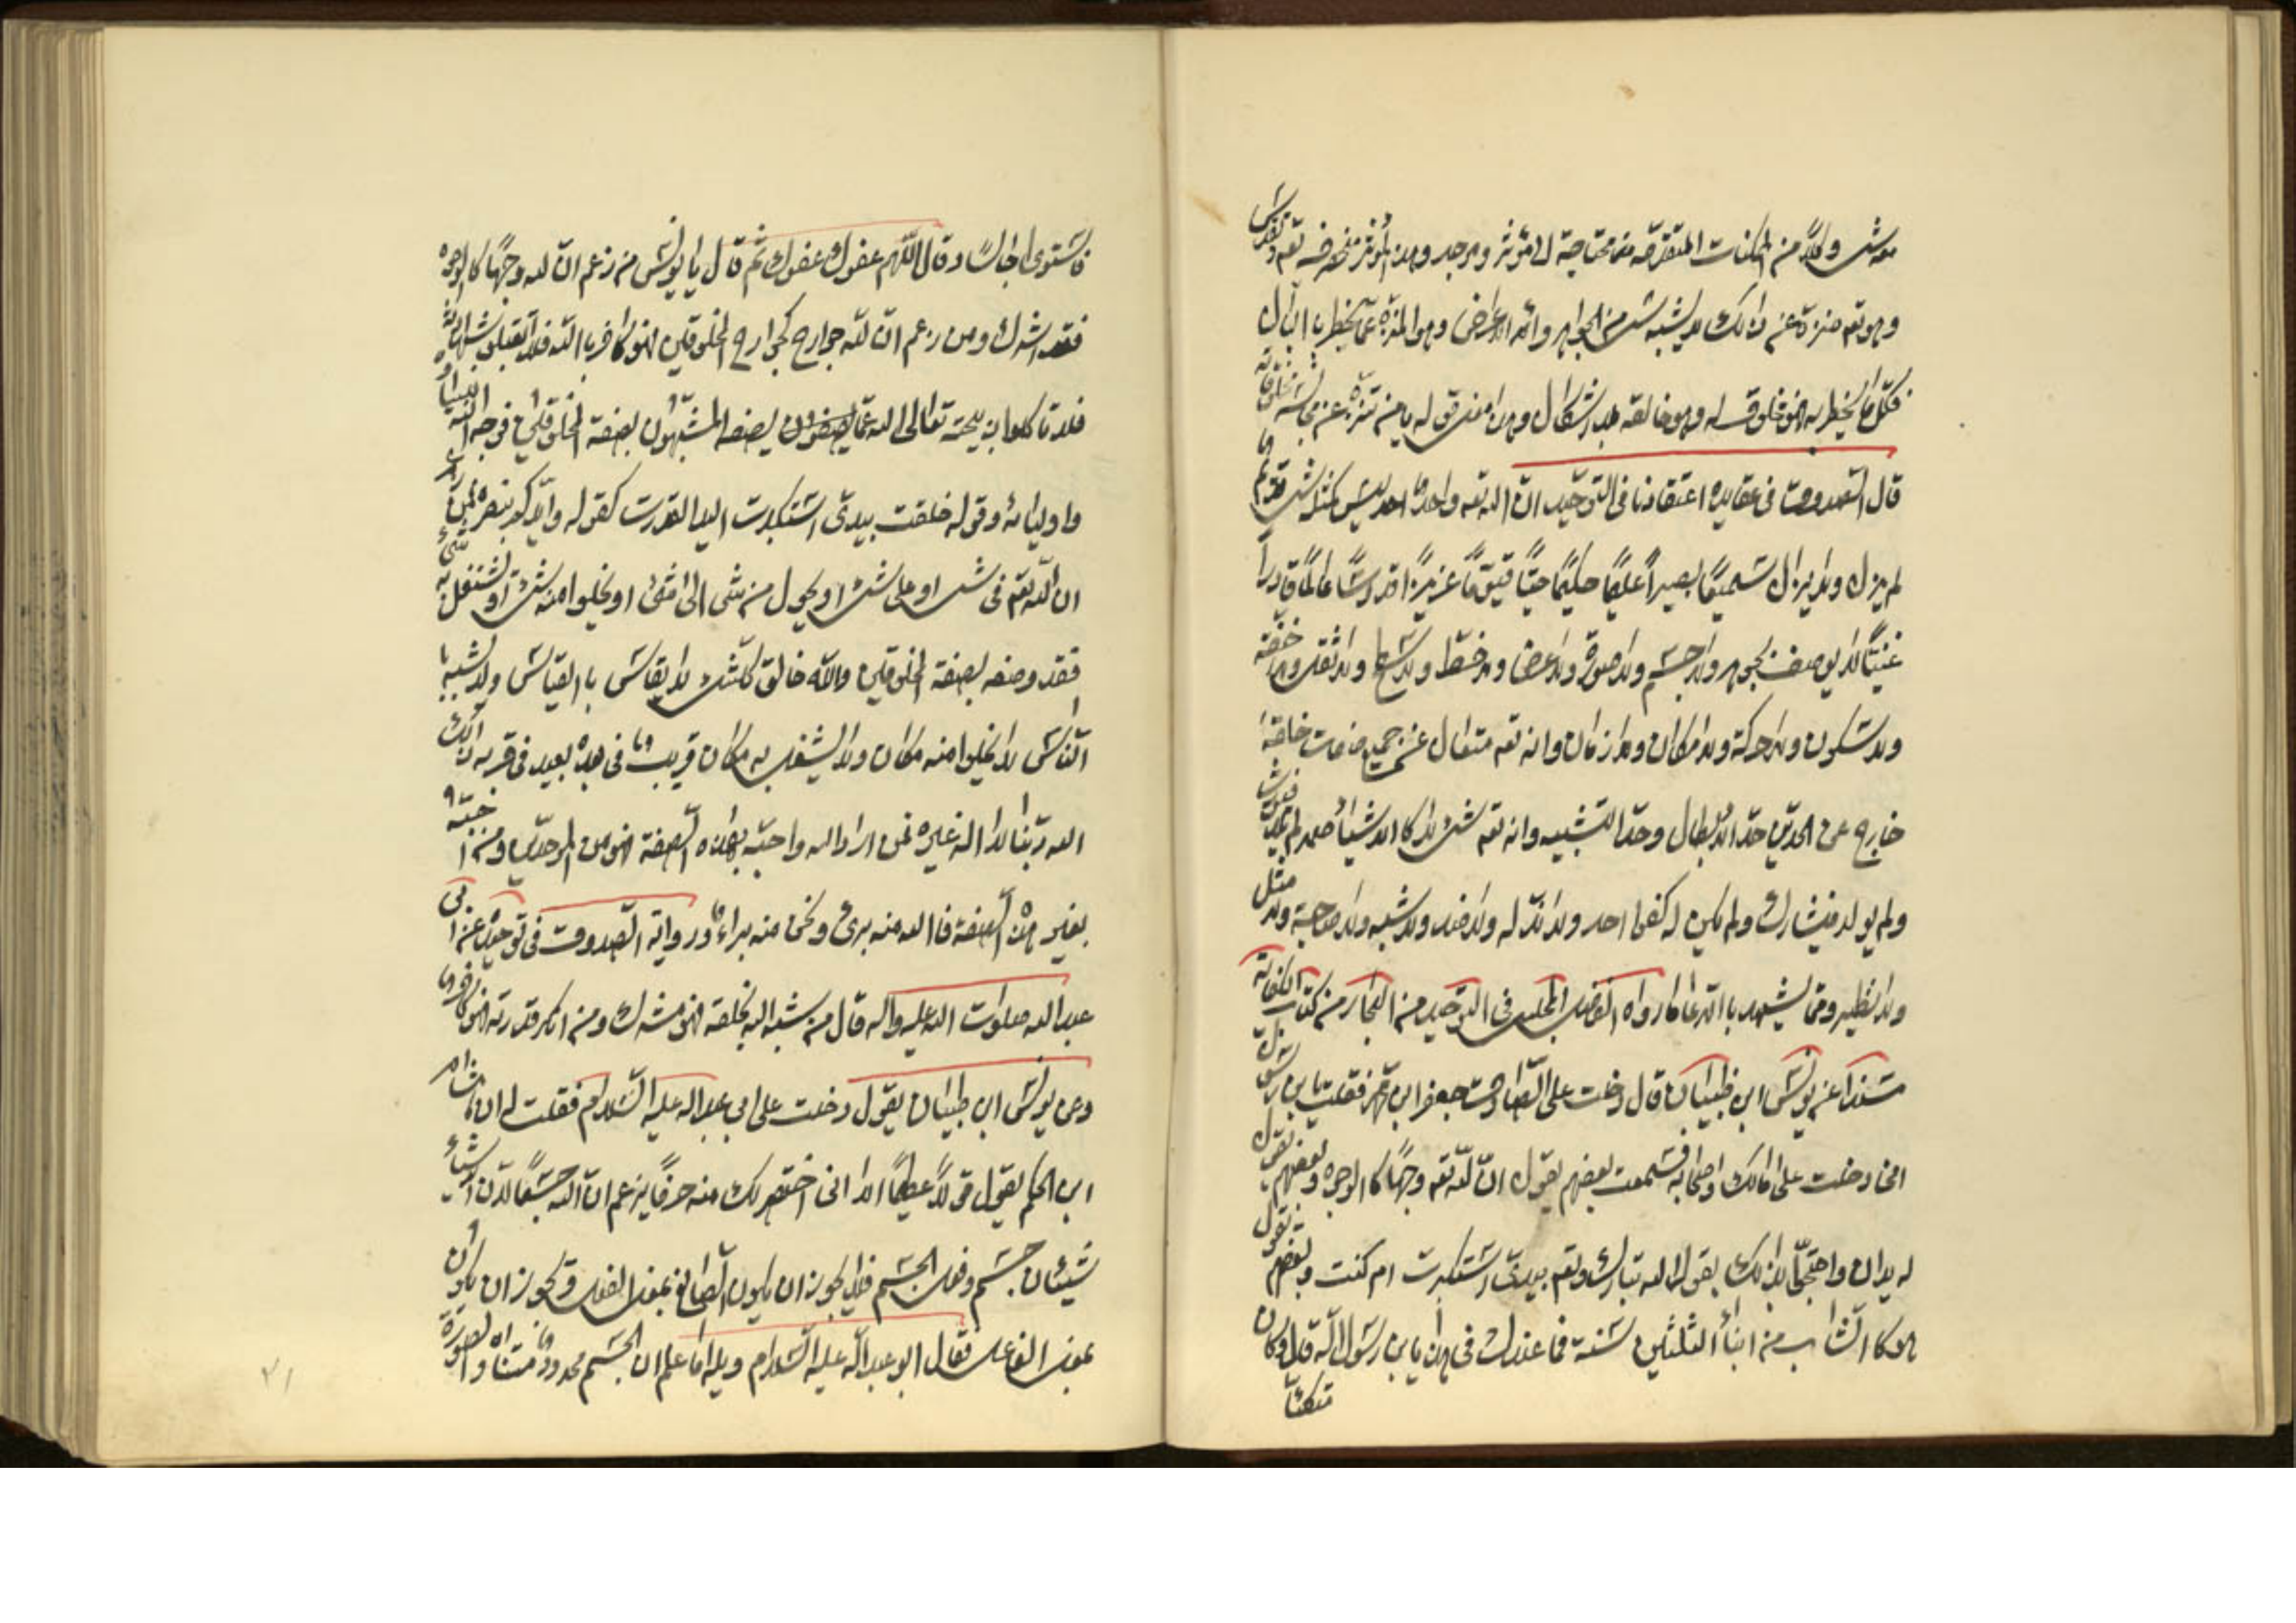 وكلا من الممكنات محتاجة الى مؤثر وموجد وهذا المؤثر منحصر فيه تعه وتقدس
وهو تعه منزه عن ذلك لا يشبه شيئ من الجواهر والاعراض وهو المنزه عما يخطر بالبال
فكل ما يخطر به فهو مخلوق له وهو خالقه بلا اشكال وهذا معنى قوله يا من تنزه عن مجانسة مخلوقاته
قال الصدوق في عقايده اعتقادنا في التوحيد ان الله تعه واحد احد ليس كمثله شيئ قديم
لم يزل ولا يزال سميعًا بصيراً عليمًا حكيمًا حيًّا قيّومًا عزيزًا قدوسًا عالمًا قادراً
غنيًّا لا يوصف بجوهر ولا جسم ولا صورة ولا عرض ولا خط ولا سطح ولا ثقل ولا خفة
ولا سكون ولا حركة ولا مكان ولا زمان وانه تعه متعال عن جميع صفات خلقه
خارج عن الحدين حد الابطال وحد التشبيه وانه تعه شيئ لا كالاشياء صمد لم يلد فيورث
ولم يولد فيشارك ولم يكن له كفوا احد ولا ند له ولا ضد ولا شبه ولا صاحبة ولا مثل
ولا نظير ومما يشهد بالمدعا ما رواه الفاضل المجلسي في التوحيد من البحار من كتاب الكفاية
مسنداً عن يونس ابن ظبيان قال دخلت على الصادق جعفر ابن محمد فقلت يا بن رسول الله
اني دخلت على مالك واصحابه فسمعت بعضهم يقول ان لله تعه وجهًا كالوجوه وبعضهم يقول
له يدان واحتجّا بذلك بقول الله تبارك وتعه بيديّ استكبرت ام كنت وبعضهم يقول
هو كالشاب من ابناء الثلثين سنة فما عندك في هذا يا بن رسول الله قال وكان
متكئًا
فاستوى جالسًا وقال اللّهم عفوك عفوك ثم قال يا يونس من زعم ان لله وجهًا كالوجوه
فقد اشرك ومن زعم ان لله جوارح كجوارح المخلوقين فهو كافر بالله فلا تقبلوا شهادته
فلا تاكلوا ذبيحته تعالى الله عما يصفون يصفه المشبهون بصفة المخلوقين فوجه الله انبياؤه
واولياؤه وقوله خلقت بيديّ استكبرت اليد القدرت كقوله وايدكم بنصره فمن زعم
ان الله تعه في شيئ او على شيئ او يحول من شئ الى شئ او يخلوا منه شيئ او يشتغل به شئ
فقد وصفه بصفة المخلوقين والله خالق كلشيئ لا يقاس بالقياس ولا يشبه با
الناس لا يخلوا منه مكان ولا يشغل به مكان قريب في بعده بعيد في قربه ذلك
الله ربنا لا اله غيره فمن اراد الله واحبّه بهذه الصفة فهو من الموحدين ومن احبّه
بغير هذه الصفة فالله منه برئ ونحن منه براء ورواية الصدوق في توحيده عن ابي
عبد الله صلوات الله عليه واله قال من شبه الله بخلقه فهو مشرك ومن انكر قدرته فهو كافر
وعن يونس ابن ظبيان يقول دخلت على ابي عبد الله عليه السلام فقلت له ان هشام
ابن الحكم يقول قولاً عظيمًا الا اني اختصر لك منه حرفا يزعم ان الله جسمًا لان الاشياء
شيئان جسم وفعل الجسم فلا يجوز ان يكون الصانع بمعنى الفعل ويجوز ان يكون
بمعنى الفاعل فقال ابو عبد الله عليه السلام ويله اما علم ان الجسم محدود متناه والصورة
٧١